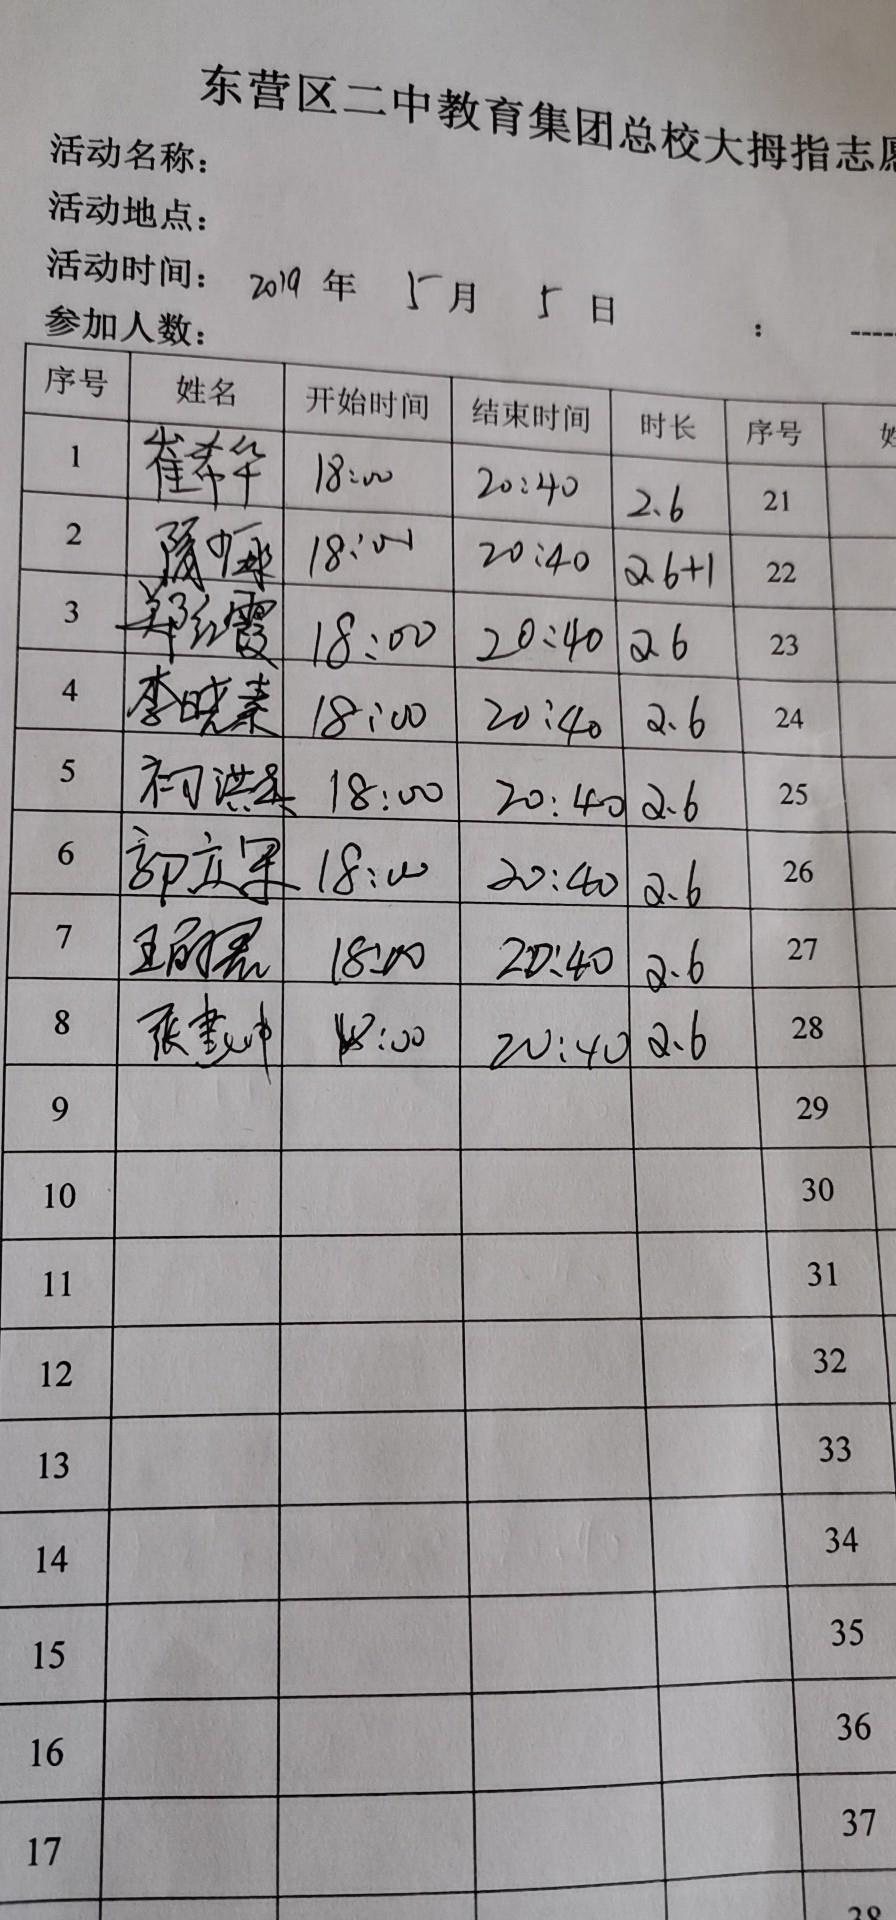 东营区二中教育集团总校大拇指志愿
活动名称：
活动地点：
活动时间： 2019 年 5 月 5 日 ：
参加人数：
序号 姓名 开始时间 结束时间 时长 序号 姓
1 崔希华 18:00 20:40 2.6 21
2 18:00 20:40 2.6+1 22
3 郑红霞 18:00 20:40 2.6 23
4 李晓素 18:00 20:40 2.6 24
5 18:00 20:40 2.6 25
6 郭立军 18:00 20:40 2.6 26
7 18:00 20:40 2.6 27
8 18:00 20:40 2.6 28
9 29
10 30
11 31
12 32
13 33
14 34
15 35
16 36
17 37
38